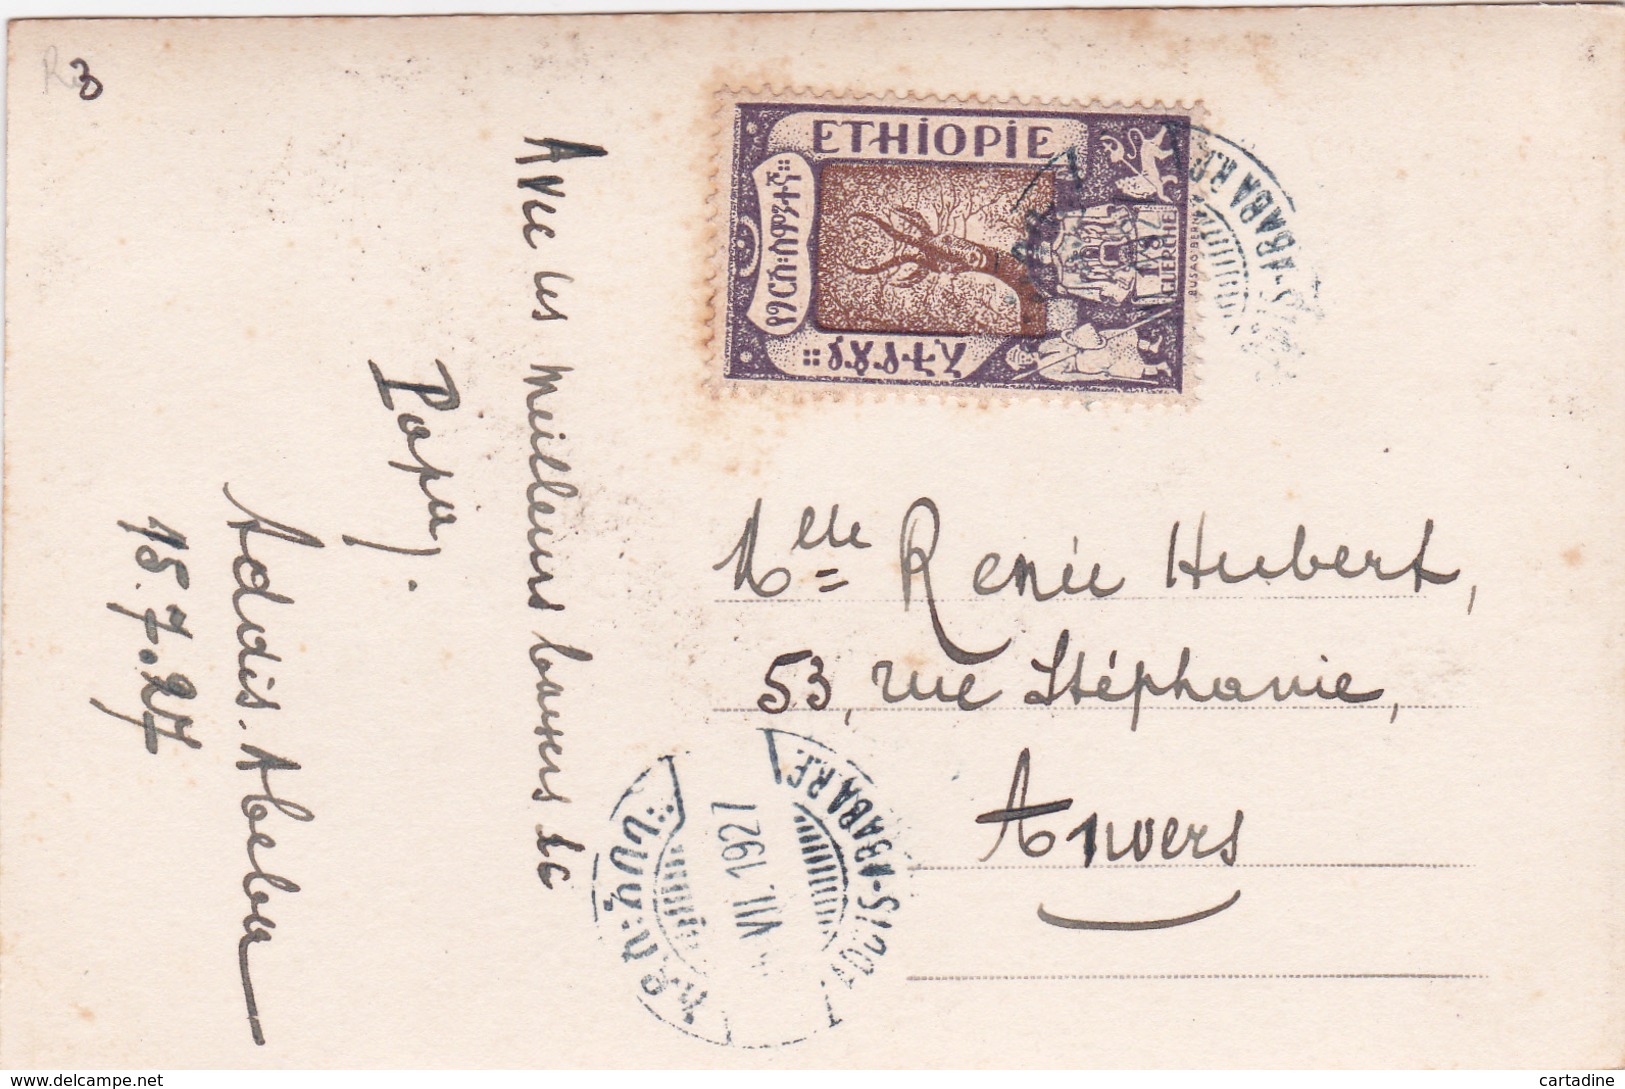 R 30
Avec les meilleurs baisers de
Papa.
Addis-Abeba
15.7.27
ETHIOPIE
ኢትዮጵያ።
GUERCHE
Mlle Renée Hubert,
53, rue Stéphanie,
Anvers
ADDIS-ABABA R.F.
VII 1927
ADDIS-ABABA R.F.
delcampe.net
cartadine